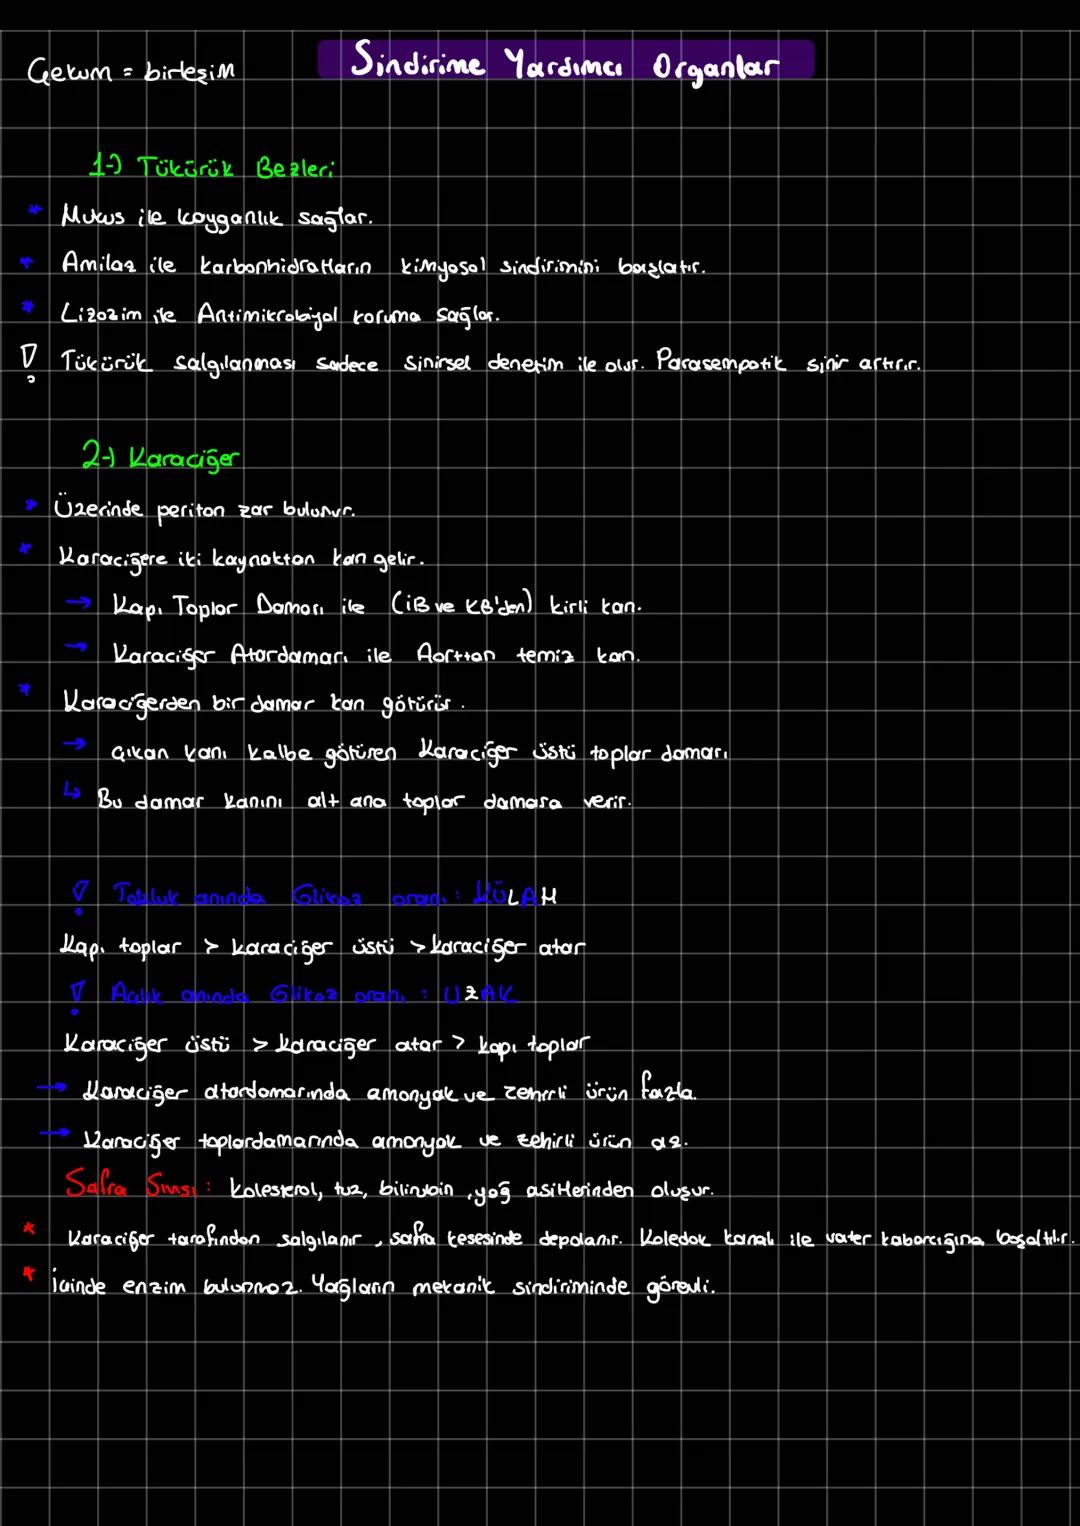 Sindirime Yardımcı Organlar
Çekum = birleşim
1-) Tükürük Bezleri
* Mukus ile kayganlık sağlar.
* Amilaz ile karbonhidratların kimyasal sindirimini başlatır.
* Lizozim ile Antimikrobiyal koruma sağlar.
! Tükürük salgılanması sadece sinirsel denetim ile olur. Parasempatik sinir artırır.
2-) Karaciğer
* Üzerinde periton zar bulunur.
* Karaciğere iki kaynaktan kan gelir.
→ Kapı Toplar Damarı ile (İB ve KB'den) kirli kan.
→ Karaciğer Atardamarı ile Aorttan temiz kan.
* Karaciğerden bir damar kan götürür.
→ Çıkan kanı kalbe götüren Karaciğer üstü toplar damarı
↳ Bu damar kanını alt ana toplar damara verir.
! Tokluk anında Glikoz oranı : KÜLAH
Kapı toplar > karaciğer üstü > karaciğer atar
! Açlık anında Glikoz oranı : UZAK
Karaciğer üstü > karaciğer atar > kapı toplar
→ Karaciğer atardamarında amonyak ve zehirli ürün fazla.
→ Karaciğer toplardamarında amonyak ve zehirli ürün az.
Safra Sıvısı : kolesterol, tuz, bilirubin, yağ asitlerinden oluşur.
* Karaciğer tarafından salgılanır, safra kesesinde depolanır. Koledok kanalı ile vater kabarcığına boşaltılır.
* İçinde enzim bulunmaz. Yağların mekanik sindiriminde görevli.